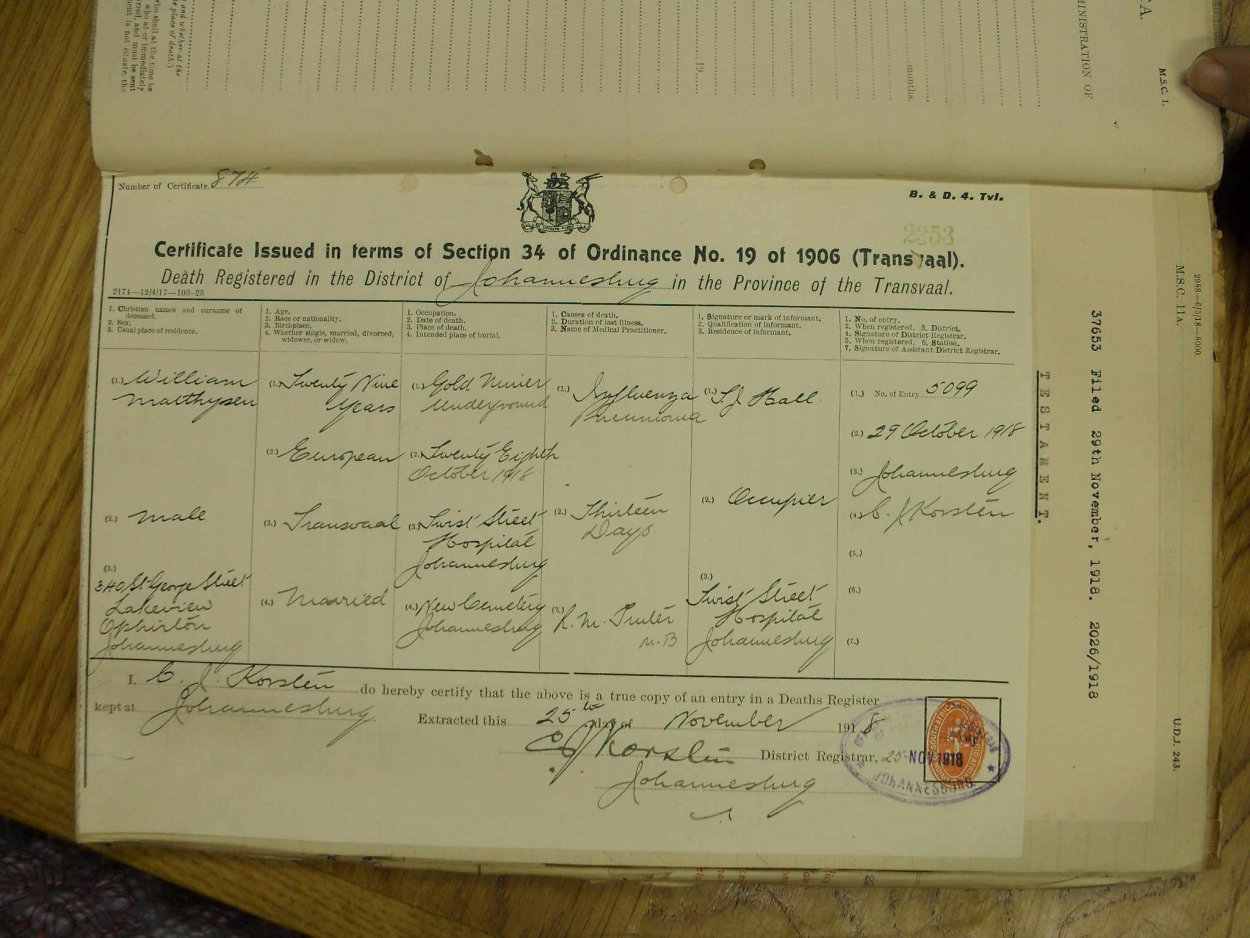 who shall at the time be
who at or immediately
erred, and must be sent
ment is not situate, the
and whether at the
place of death.)
19
months.
MINISTRATION OF
M.S.C. 1.
Number of Certificate 874
B. & D. 4. Tvl.
2353
Certificate Issued in terms of Section 34 of Ordinance No. 19 of 1906 (Transvaal).
Death Registered in the District of Johannesburg in the Province of the Transvaal.
2174—12/4/17—100-25
1. Christian names and surname of deceased.
2. Sex.
3. Usual place of residence.
1. Age.
2. Race or nationality.
3. Birthplace.
4. Whether single, married, divorced, widower, or widow.
1. Occupation.
2. Date of death.
3. Place of death.
4. Intended place of burial.
1. Causes of death.
2. Duration of last illness.
3. Name of Medical Practitioner.
1. Signature or mark of informant.
2. Qualification of informant.
3. Residence of informant.
1. No. of entry.
2. When registered. 3. District.
4. Signature of District Registrar.
5. When registered. 6. Station.
7. Signature of Assistant District Registrar.
(1.) William
Matthysen
(2.) Male
(3.)
340 St George Street
Lakeview
Ophirton
Johannesburg
(1.) Twenty Nine
Years
(2.) European
(3.) Transvaal
(4.) Married
(1.) Gold Miner
Underground
(2.) Twenty Eighth
October 1918
(3.) Twist Street
Hospital
Johannesburg
(4.) New Cemetery
Johannesburg
(1.) Influenza
Pneumonia
(2.) Thirteen
Days
(3.) R. M. Truter
M.B
(1.) T J Hall.
(2.) Occupier
(3.)
Twist Street
Hospital
Johannesburg
(1.) No. of Entry 5099
(2.) 29 October 1918
(3.) Johannesburg
(4.) C. J Korsten
(5.)
(6.)
(7.)
I, C. J. Korsten do hereby certify that the above is a true copy of an entry in a Deaths Register
kept at Johannesburg
Extracted this 25th day of November 1918
C J Korsten District Registrar,
Johannesburg
25-NOV 1918
JOHANNESBURG
TESTAMENT.
37653 Filed 29th November, 1918. 2026/1918
M.S.C. 11A.
2988—6/5/18—8000.
U.D.J. 243.